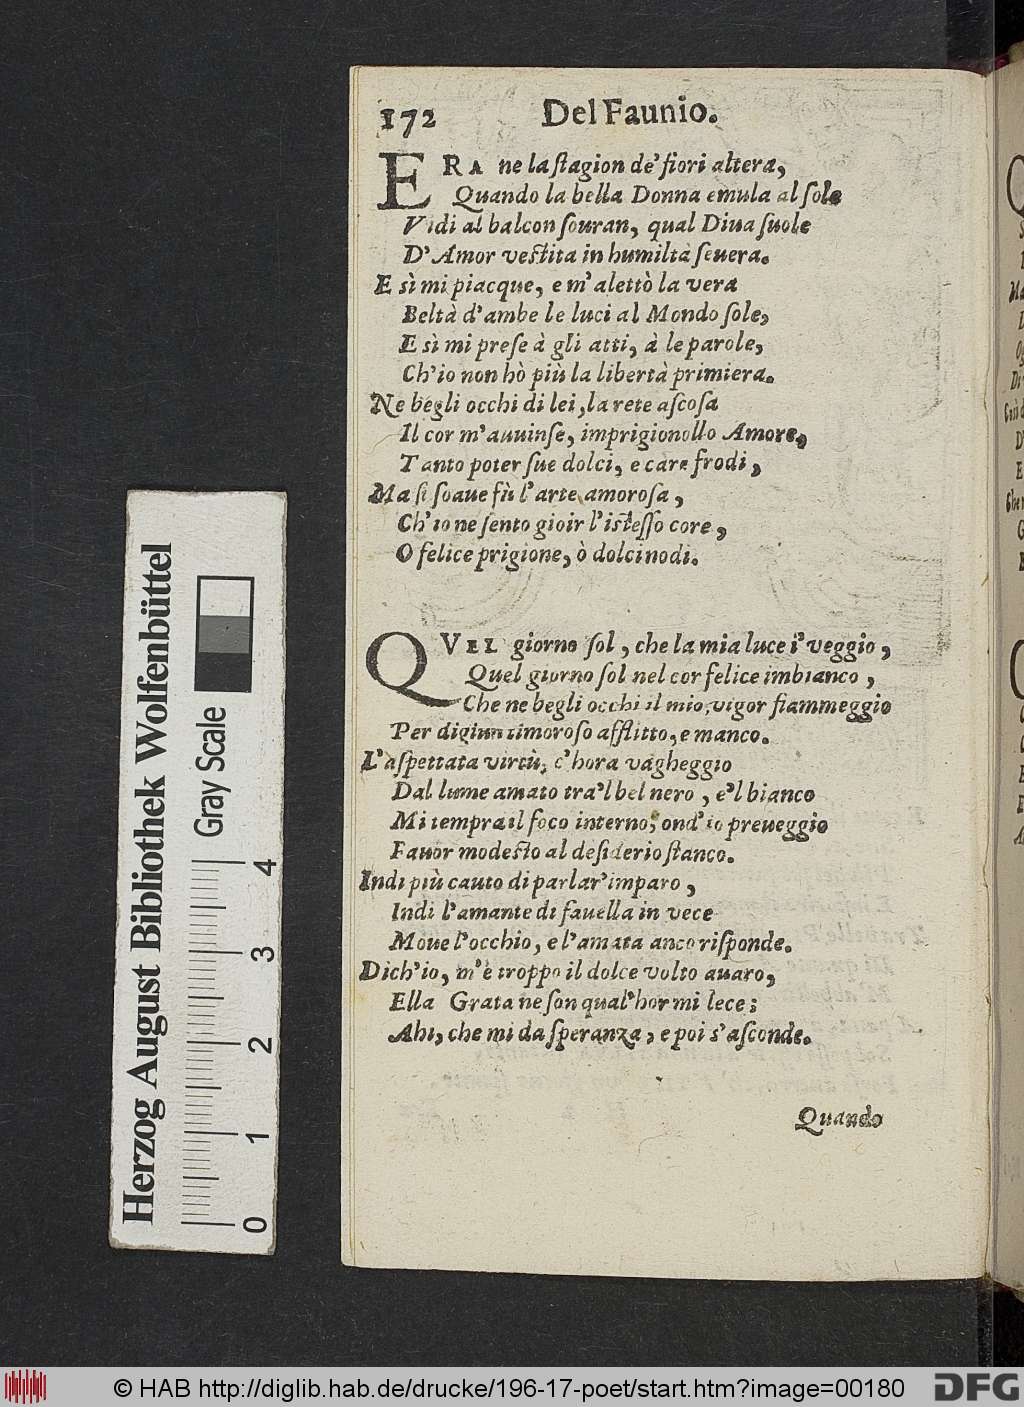 172 Del Faunio.
ERA ne la ſtagion de' fiori altera,
Quando la bella Donna emula al ſole
Vidi al balcon ſouran, qual Diua ſuole
D'Amor veſtita in humiltà ſeuera.
E sì mi piacque, e m'alettò la vera
Beltà d'ambe le luci al Mondo ſole,
E sì mi preſe à gli atti, à le parole,
Ch'io non hò più la libertà primiera.
Ne begli occhi di lei, la rete aſcoſa
Il cor m'auuinſe, imprigionollo Amore,
Tanto poter ſue dolci, e care frodi,
Ma ſi ſoaue fù l'arte amoroſa,
Ch'io ne ſento gioir l'iſteſſo core,
O felice prigione, ò dolci nodi.
QVEL giorno ſol, che la mia luce i' veggio,
Quel giorno ſol nel cor felice imbianco,
Che ne begli occhi il mio vigor fiammeggio
Per digiun timoroſo afflitto, e manco.
L'aſpettata virtù, c'hora vagheggio
Dal lume amato tra'l bel nero, e'l bianco
Mi tempra il foco interno, ond'io preueggio
Fauor modeſto al deſiderio ſtanco.
Indi più cauto di parlar'imparo,
Indi l'amante di fauella in vece
Moue l'occhio, e l'amata anco riſponde.
Dich'io, m'è troppo il dolce volto auaro,
Ella Grata ne ſon qual'hor mi lece;
Ahi, che mi da ſperanza, e poi s'aſconde.
Quando
Herzog August Bibliothek Wolfenbüttel
Gray Scale
0 1 2 3 4
© HAB http://diglib.hab.de/drucke/196-17-poet/start.htm?image=00180
DFG